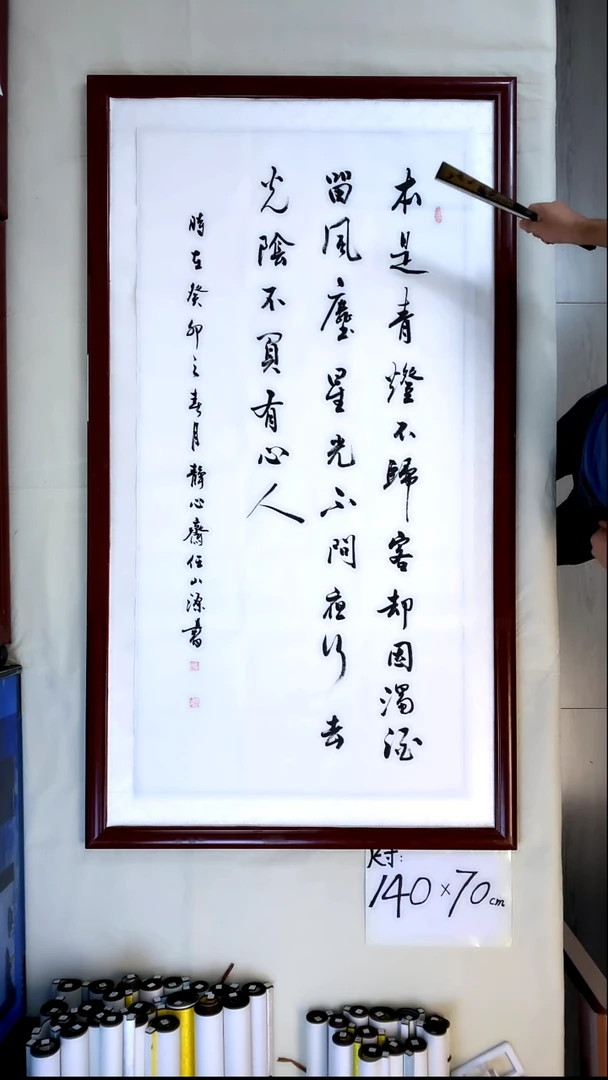 本是青燈不歸客却因濁酒
留風塵星光不問夜行去
光陰不負有心人
時在癸卯之春月靜心齋任山源書
尺寸:
140×70cm